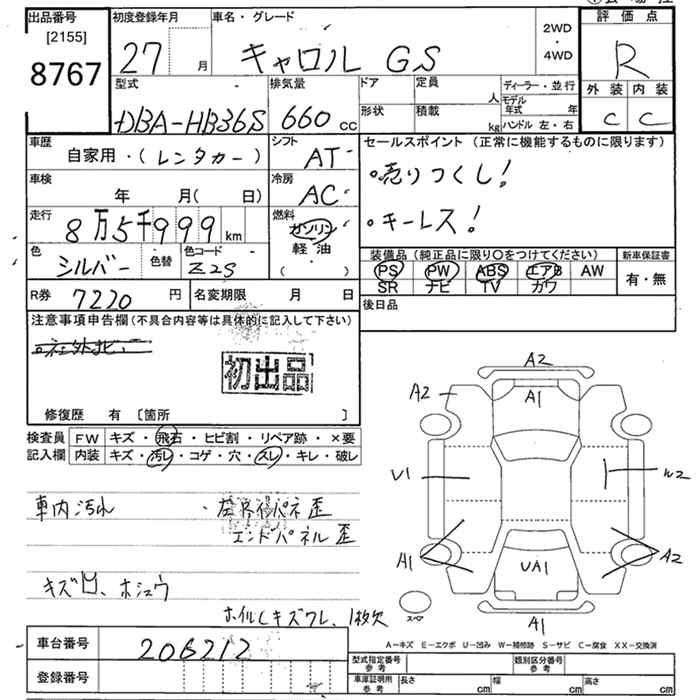 出品番号
[2155]
8767
初度登録年月
27 月
車名・グレード
キャロル GS
2WD
・
4WD
評価点
R
外装 内装
C C
型式
DBA-HB36S
排気量
660 cc
ドア
形状
定員
人
積載
kg
ディーラー・並行
モデル年式 年
ハンドル 左・右
車歴
自家用・(レンタカー)
シフト
AT
車検
年 月( 日)
冷房
AC
走行
8万5千999 km
燃料
ガソリン
軽油
( )
色
シルバー
色替
色コード
Z2S
セールスポイント (正常に機能するものに限ります)
・売りつくし!
・キーレス!
装備品 (純正品に限り○をつけてください)
PS PW ABS エアB AW
SR ナビ TV カワ
新車保証書
有・無
R券 7220 円
名変期限 月 日
後日品
注意事項申告欄 (不具合内容等は具体的に記入して下さい)
初出品
修復歴 有 [箇所 ]
検査員記入欄
FW キズ・飛石・ヒビ割・リペア跡・×要
内装 キズ・汚レ・コゲ・穴・スレ・キレ・破レ
車内汚れ
エンドパネル歪
キズ凹、ホシュウ
ホイルCキズワレ、1枚欠
A2
A2
A1
U1
W2
A1
A2
UA1
スペア
A1
A-キズ E-エクボ U-凹み W-補修跡 S-サビ C-腐食 XX-交換済
車台番号
206212
登録番号
型式指定番号
参考
類別区分番号
参考
車庫証明用
参考
長さ cm
幅 cm
高さ cm